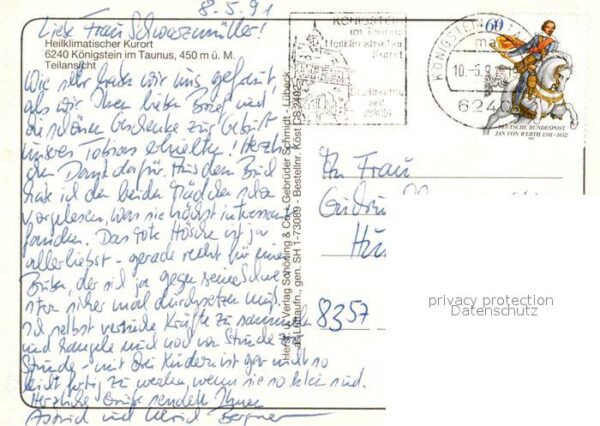 8.5.91
Liebe Frau Schwarzmüller!
Heilklimatischer Kurort
6240 Königstein im Taunus, 450 m ü. M.
Teilansicht
Wie sehr haben wir uns gefreut,
als wir Ihren lieben Brief und
die schönen Geschenke zur Geburt
unseres Tobias erhielten! Herzli-
chen Dank dafür. Aus dem Buch
hab ich den beiden Mädchen schon
vorgelesen, was sie höchst interessant
fanden. Das rote Höschen ist ja
allerliebst - gerade recht für einen
Buben, der sich ja gegen seine Schwe-
stern sicher mal durchsetzen muß.
Ich selbst versuche Kräfte zu sammeln
und hangele mich so von Stunde zu
Stunde - mit drei Kindern ist gar nicht so
leicht fertig zu werden, wenn sie so klein sind.
Herzliche Grüße senden Ihnen
Astrid und Ulrich Bergner
Herst. u. Verlag Schöning & Co + Gebrüder Schmidt · Lübeck
as Luftaufn., gen. SH 1-73089 - Bestellnr. Köst CS 2402
KÖNIGSTEIN
im Taunus
Heilklimatischer
Kurort
seit
KÖNIGSTEIN
6240
60
DEUTSCHE BUNDESPOST
JAN VON WERTH 1591-1652
An Frau
8357
privacy protection
Datenschutz